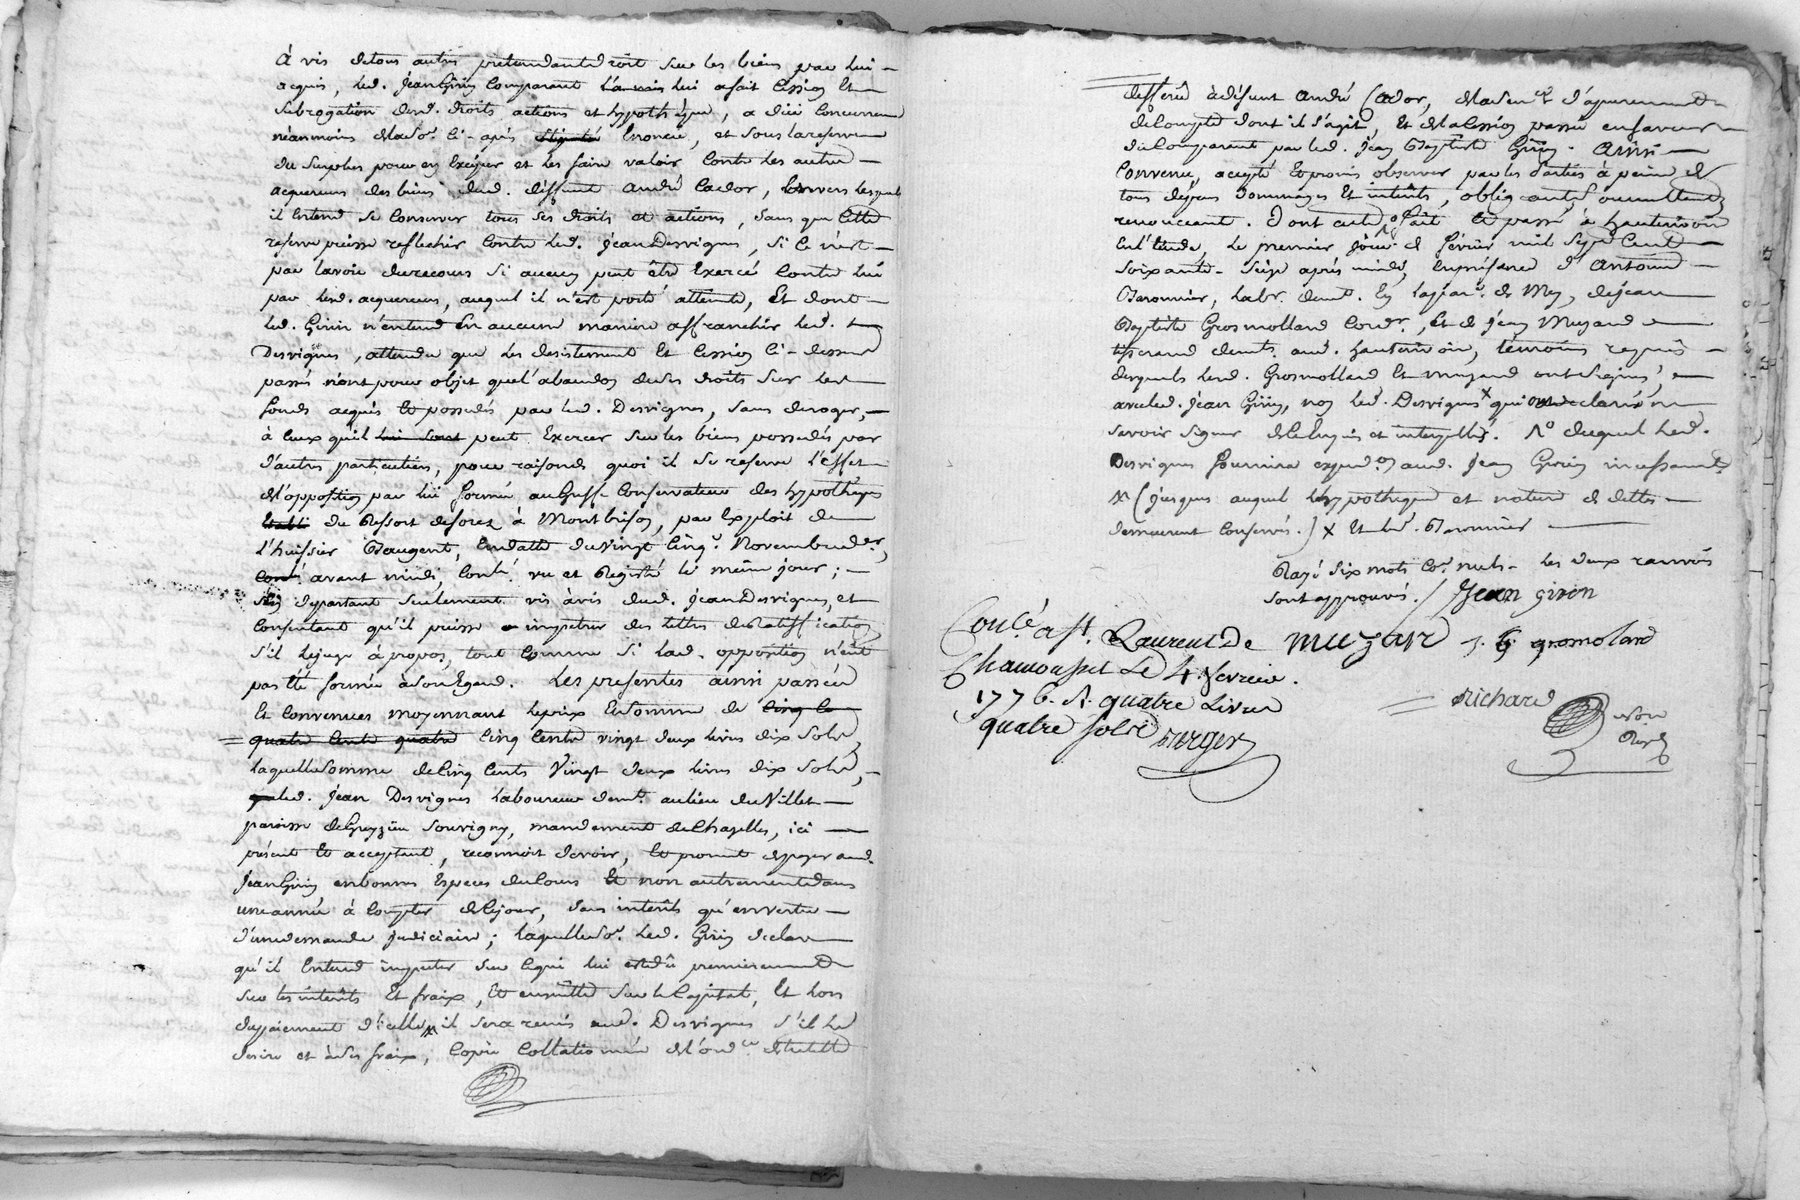 à vis de tous autres pretendants droit sur les biens par lui
acquis, led. Jean Girin comparant lui a fait cession et
subrogation desd. droits actions et hypothèque, a düe concurrence
néanmoins de la so.e ci-après enoncée, et sous la reserve
du surplus pour en exciper et les faire valoir contre les autres
acquereurs des biens dud. deffunt André Cador, envers lesquels
il entend se conserver tous ses droits et actions, sans que cette
reserve puisse reflechir contre led. Jean Desvignes, si ce n'est
par la voie du recours si aucun peut être exercé contre lui
par lesd. acquereurs, auquel il n'est porté atteinte, et dont
led. Girin n'entend en aucune maniere affranchir led.
Desvignes, attendu que les desistement et cession ci-dessus
passés n'ont pour objet que l'abandon de ses droits sur les
fonds acquis et possedés par led. Desvignes, sans deroger,
à ceux qu'il peut exercer sur les biens possedés par
d'autres particuliers, pour raison de quoi il se reserve l'effet
de l'opposition par lui formée au Greffe conservateur des hypothèques
du Ressort de forez à Montbrison, par exploit de
l'huissier Baugent, en datte du vingt cinq.e Novembre d.er,
avant midi, Conlé. vu et Registré le même jour;
s'en departant seulement vis à vis dud. Jean Desvignes, et
consentant qu'il puisse impetrer des lettres de Ratiffication
s'il le juge à propos, tout comme si lad. opposition n'eut
pas été formée à son egard. Les presentes ainsi passées
et convenues moyennant le prix et somme de cinq ce
quatre cents quatre cinq cents vingt deux livres dix sols,
laquelle somme de cinq cents vingt deux livres dix sols,
led. Jean Desvignes laboureur dem.t au lieu du Villet
paroisse de Grezieu Souvigny, mandement de Chazelles, ici
présent et acceptant, reconnoit devoir, et promet de payer aud.
Jean Girin en bonnes especes du cours et non autrement dans
une année à compter de ce jour, sans interêts qu'en vertu
d'une demande judiciaire; laquelle so.e led. Girin declare
qu'il entend imputer sur ce qui lui est dû premierement
sur les interêts et fraix, et ensuitte sur le capital, et lors
du paiement d'icelle il sera remis aud. Desvignes s'il le
desire et à ses fraix, copie collationnée de l'ord.ce
differée à défunt André Cador, de la d'apurement
de compte dont il s'agit, et de la cession passée en faveur
du comparant par led. Jean Baptiste Girin. Ainsi
convenu, accepté et promis observer par les parties à peine de
tous dépens dommages et interêts, obligeants soumettants
renonceants. Dont acte fait et passé à hauterivoire
en l'etude, le premier jour de fevrier mil sept cent
soixante-seize après midi, en présence d'Antoine
Baronnier, lab.r dem.t en la par.e de Mey, de jean
Baptiste Grosmolland cord.r, et de jean Muzard
tisserand dem.ts aud. hauterivoire, témoins requis
desquels lesd. Grosmolland et muzard ont signé,
avec led. Jean Girin, non led. Desvignes x qui ont declaré ne
savoir signer de ce enquis et interpellés. duquel led.
Desvignes fournira exped.on aud. Jean Girin incessament
(jusques auquel l'hypothèque et nature de dette
demeurent conservés.) x et led. Baronnier
Rayé six mots co.e nuls - les deux renvois
sont approuvés. / Jean giren
Conlé. à S.t Laurent de muzar J. B. gromoland
Chamousset le 4. fevrier.
1776. R. quatre livres
quatre sols Berger
Richard
Nore
Roy.l